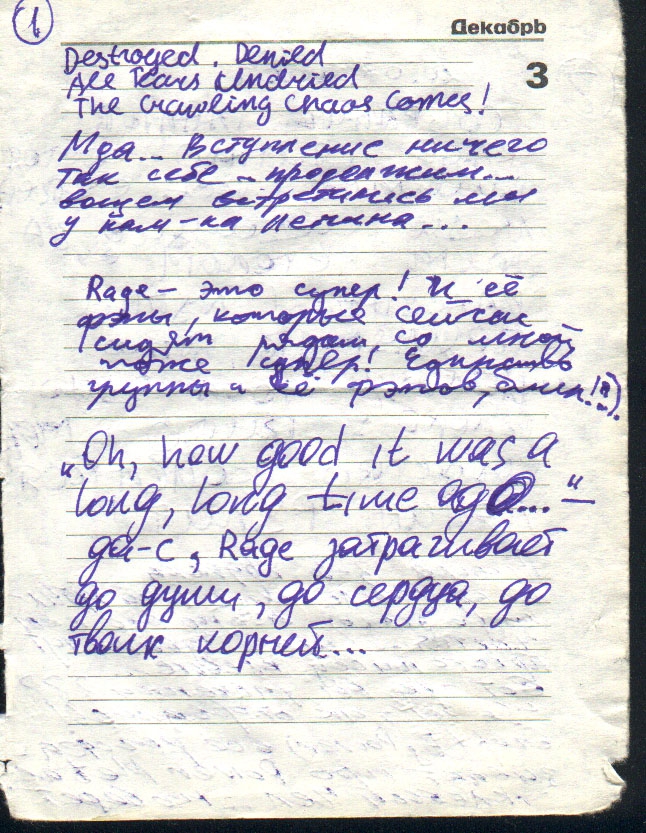 1
Декабрь
3
Destroyed. Denied
All Tears Undried
The Crawling Chaos Comes!
Мда... Вступление ничего
так себе... продолжим...
вощем встретились мы
у пам-ка Ленина...
Rage - это супер! И её
фэны, которые сейчас
сидят рядом со мной
тоже супер! Единство
группы и её фэнов, блин!!!).
„Oh, how good it was a
long, long time ago..."
да-с, Rage затрагивает
до души, до сердца, до
твоих корней...